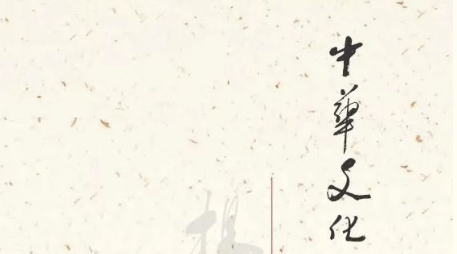 中華文化